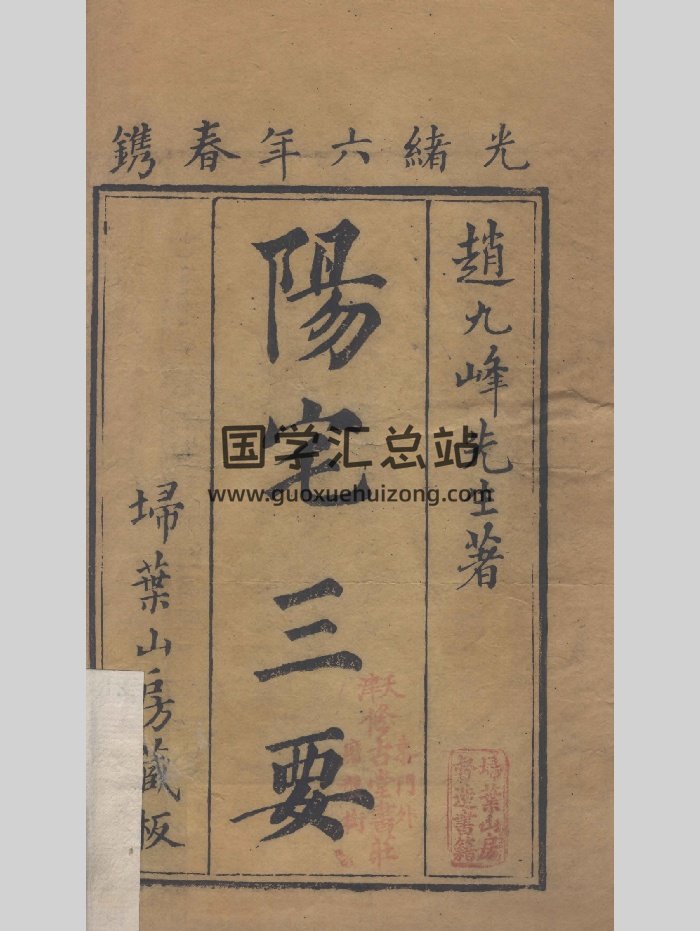 光緒六年春鐫
趙九峰先生著
陽宅三要
埽葉山房藏板
国学汇总站
www.guoxuehuizong.com
埽葉山房
督造書籍
天津
東門外
修古堂書莊